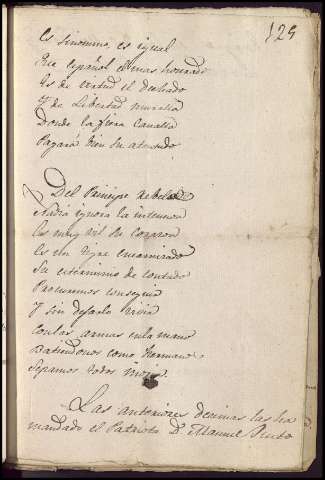 125
Es sinonimo, es igual
Que español el mas honrado
Es de virtud el dechado
Y de Libertad muralla
Donde la fiera Canalla
Pagará bien su atentado
Del Principe rebelde
Nadie ignora la intencion
Es muy vil de corazon
Es un tigre encarnizado
Su exterminio de contado
Procuremos conseguir
Y sin dejarlo vivir
Con las armas en la mano
Batiendonos como hermanos
Sepamos todos morir
Las anteriores decimas las ha
mandado el Patriota Dn Manuel Prieto